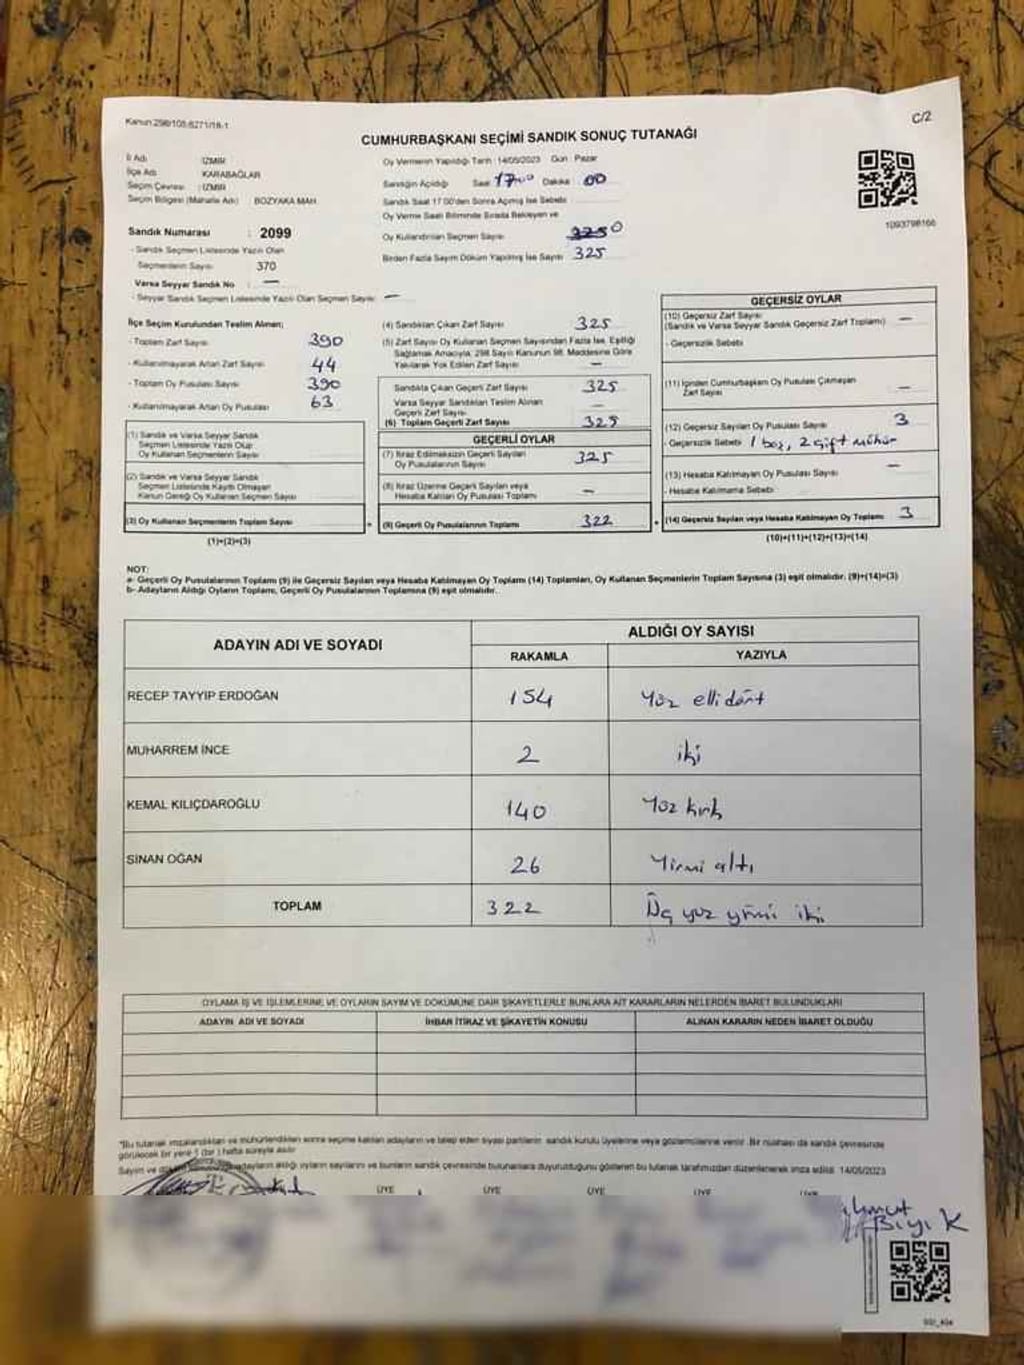 Kanun:298/105-6271/16-1
C/2
CUMHURBAŞKANI SEÇİMİ SANDIK SONUÇ TUTANAĞI
İl Adı : İZMİR
İlçe Adı : KARABAĞLAR
Seçim Çevresi : İZMİR
Seçim Bölgesi (Mahalle Adı) BOZYAKA MAH.
Sandık Numarası : 2099
- Sandık Seçmen Listesinde Yazılı Olan
Seçmenlerin Sayısı 370
Varsa Seyyar Sandık No : —
- Seyyar Sandık Seçmen Listesinde Yazılı Olan Seçmen Sayısı: —
Oy Vermenin Yapıldığı Tarih : 14/05/2023 Gün : Pazar
Sandığın Açıldığı Saat 17:00 Dakika 00
Sandık Saat 17:00'den Sonra Açılmış İse Sebebi
Oy Verme Saati Bitiminde Sırada Bekleyen ve
Oy Kullandırılan Seçmen Sayısı 0
Birden Fazla Sayım Döküm Yapılmış İse Sayısı 325
1093798166
İlçe Seçim Kurulundan Teslim Alınan;
- Toplam Zarf Sayısı 390
- Kullanılmayarak Artan Zarf Sayısı 44
- Toplam Oy Pusulası Sayısı 390
- Kullanılmayarak Artan Oy Pusulası 63
(1) Sandık ve Varsa Seyyar Sandık
Seçmen Listesinde Yazılı Olup
Oy Kullanan Seçmenlerin Sayısı
(2) Sandık ve Varsa Seyyar Sandık
Seçmen Listesinde Kaydı Olmayan
Kanun Gereği Oy Kullanan Seçmen Sayısı
(3) Oy Kullanan Seçmenlerin Toplam Sayısı
(1)+(2)=(3)
(4) Sandıktan Çıkan Zarf Sayısı 325
(5) Zarf Sayısı Oy Kullanan Seçmen Sayısından Fazla İse, Eşitliği
Sağlamak Amacıyla, 298 Sayılı Kanunun 98. Maddesine Göre
Yakılarak Yok Edilen Zarf Sayısı —
Sandıkta Çıkan Geçerli Zarf Sayısı 325
Varsa Seyyar Sandıktan Teslim Alınan
Geçerli Zarf Sayısı —
(6) Toplam Geçerli Zarf Sayısı 325
GEÇERLİ OYLAR
(7) İtiraz Edilmeksizin Geçerli Sayılan
Oy Pusulalarının Sayısı 325
(8) İtiraz Üzerine Geçerli Sayılan veya
Hesaba Katılan Oy Pusulası Toplamı —
= (9) Geçerli Oy Pusulalarının Toplamı 322
GEÇERSİZ OYLAR
(10) Geçersiz Zarf Sayısı
(Sandık ve Varsa Seyyar Sandık Geçersiz Zarf Toplamı) —
- Geçersizlik Sebebi
(11) İçinden Cumhurbaşkanı Oy Pusulası Çıkmayan
Zarf Sayısı —
(12) Geçersiz Sayılan Oy Pusulası Sayısı 3
- Geçersizlik Sebebi 1 boş, 2 çift mühür
(13) Hesaba Katılmayan Oy Pusulası Sayısı —
- Hesaba Katılmama Sebebi
+ (14) Geçersiz Sayılan veya Hesaba Katılmayan Oy Toplamı 3
(10)+(11)+(12)+(13)=(14)
NOT:
a- Geçerli Oy Pusulalarının Toplamı (9) ile Geçersiz Sayılan veya Hesaba Katılmayan Oy Toplamı (14) Toplamları, Oy Kullanan Seçmenlerin Toplam Sayısına (3) eşit olmalıdır. (9)+(14)=(3)
b- Adayların Aldığı Oyların Toplamı, Geçerli Oy Pusulalarının Toplamına (9) eşit olmalıdır.
ADAYIN ADI VE SOYADI ALDIĞI OY SAYISI
RAKAMLA YAZIYLA
RECEP TAYYİP ERDOĞAN 154 Yüz elli dört
MUHARREM İNCE 2 iki
KEMAL KILIÇDAROĞLU 140 Yüz kırk
SİNAN OĞAN 26 Yirmi altı
TOPLAM 322 Üç yüz yirmi iki
OYLAMA İŞ VE İŞLEMLERİNE VE OYLARIN SAYIM VE DÖKÜMÜNE DAİR ŞİKAYETLERLE BUNLARA AİT KARARLARIN NELERDEN İBARET BULUNDUKLARI
ADAYIN ADI VE SOYADI İHBAR İTİRAZ VE ŞİKAYETİN KONUSU ALINAN KARARIN NEDEN İBARET OLDUĞU
*Bu tutanak imzalandıktan ve mühürlendikten sonra seçime katılan adayların ve talep eden siyasi partilerin sandık kurulu üyelerine veya gözlemcilerine verilir. Bir nüshası da sandık çevresinde
görülecek bir yere 1 (bir) hafta süreyle asılır
Sayım ve döküm adayların aldığı oyların sayılarını ve bunların sandık çevresinde bulunanlara duyurulduğunu gösteren bu tutanak tarafımızdan düzenlenerek imza edildi. 14/05/2023
ÜYE ÜYE ÜYE ÜYE
Bıyık